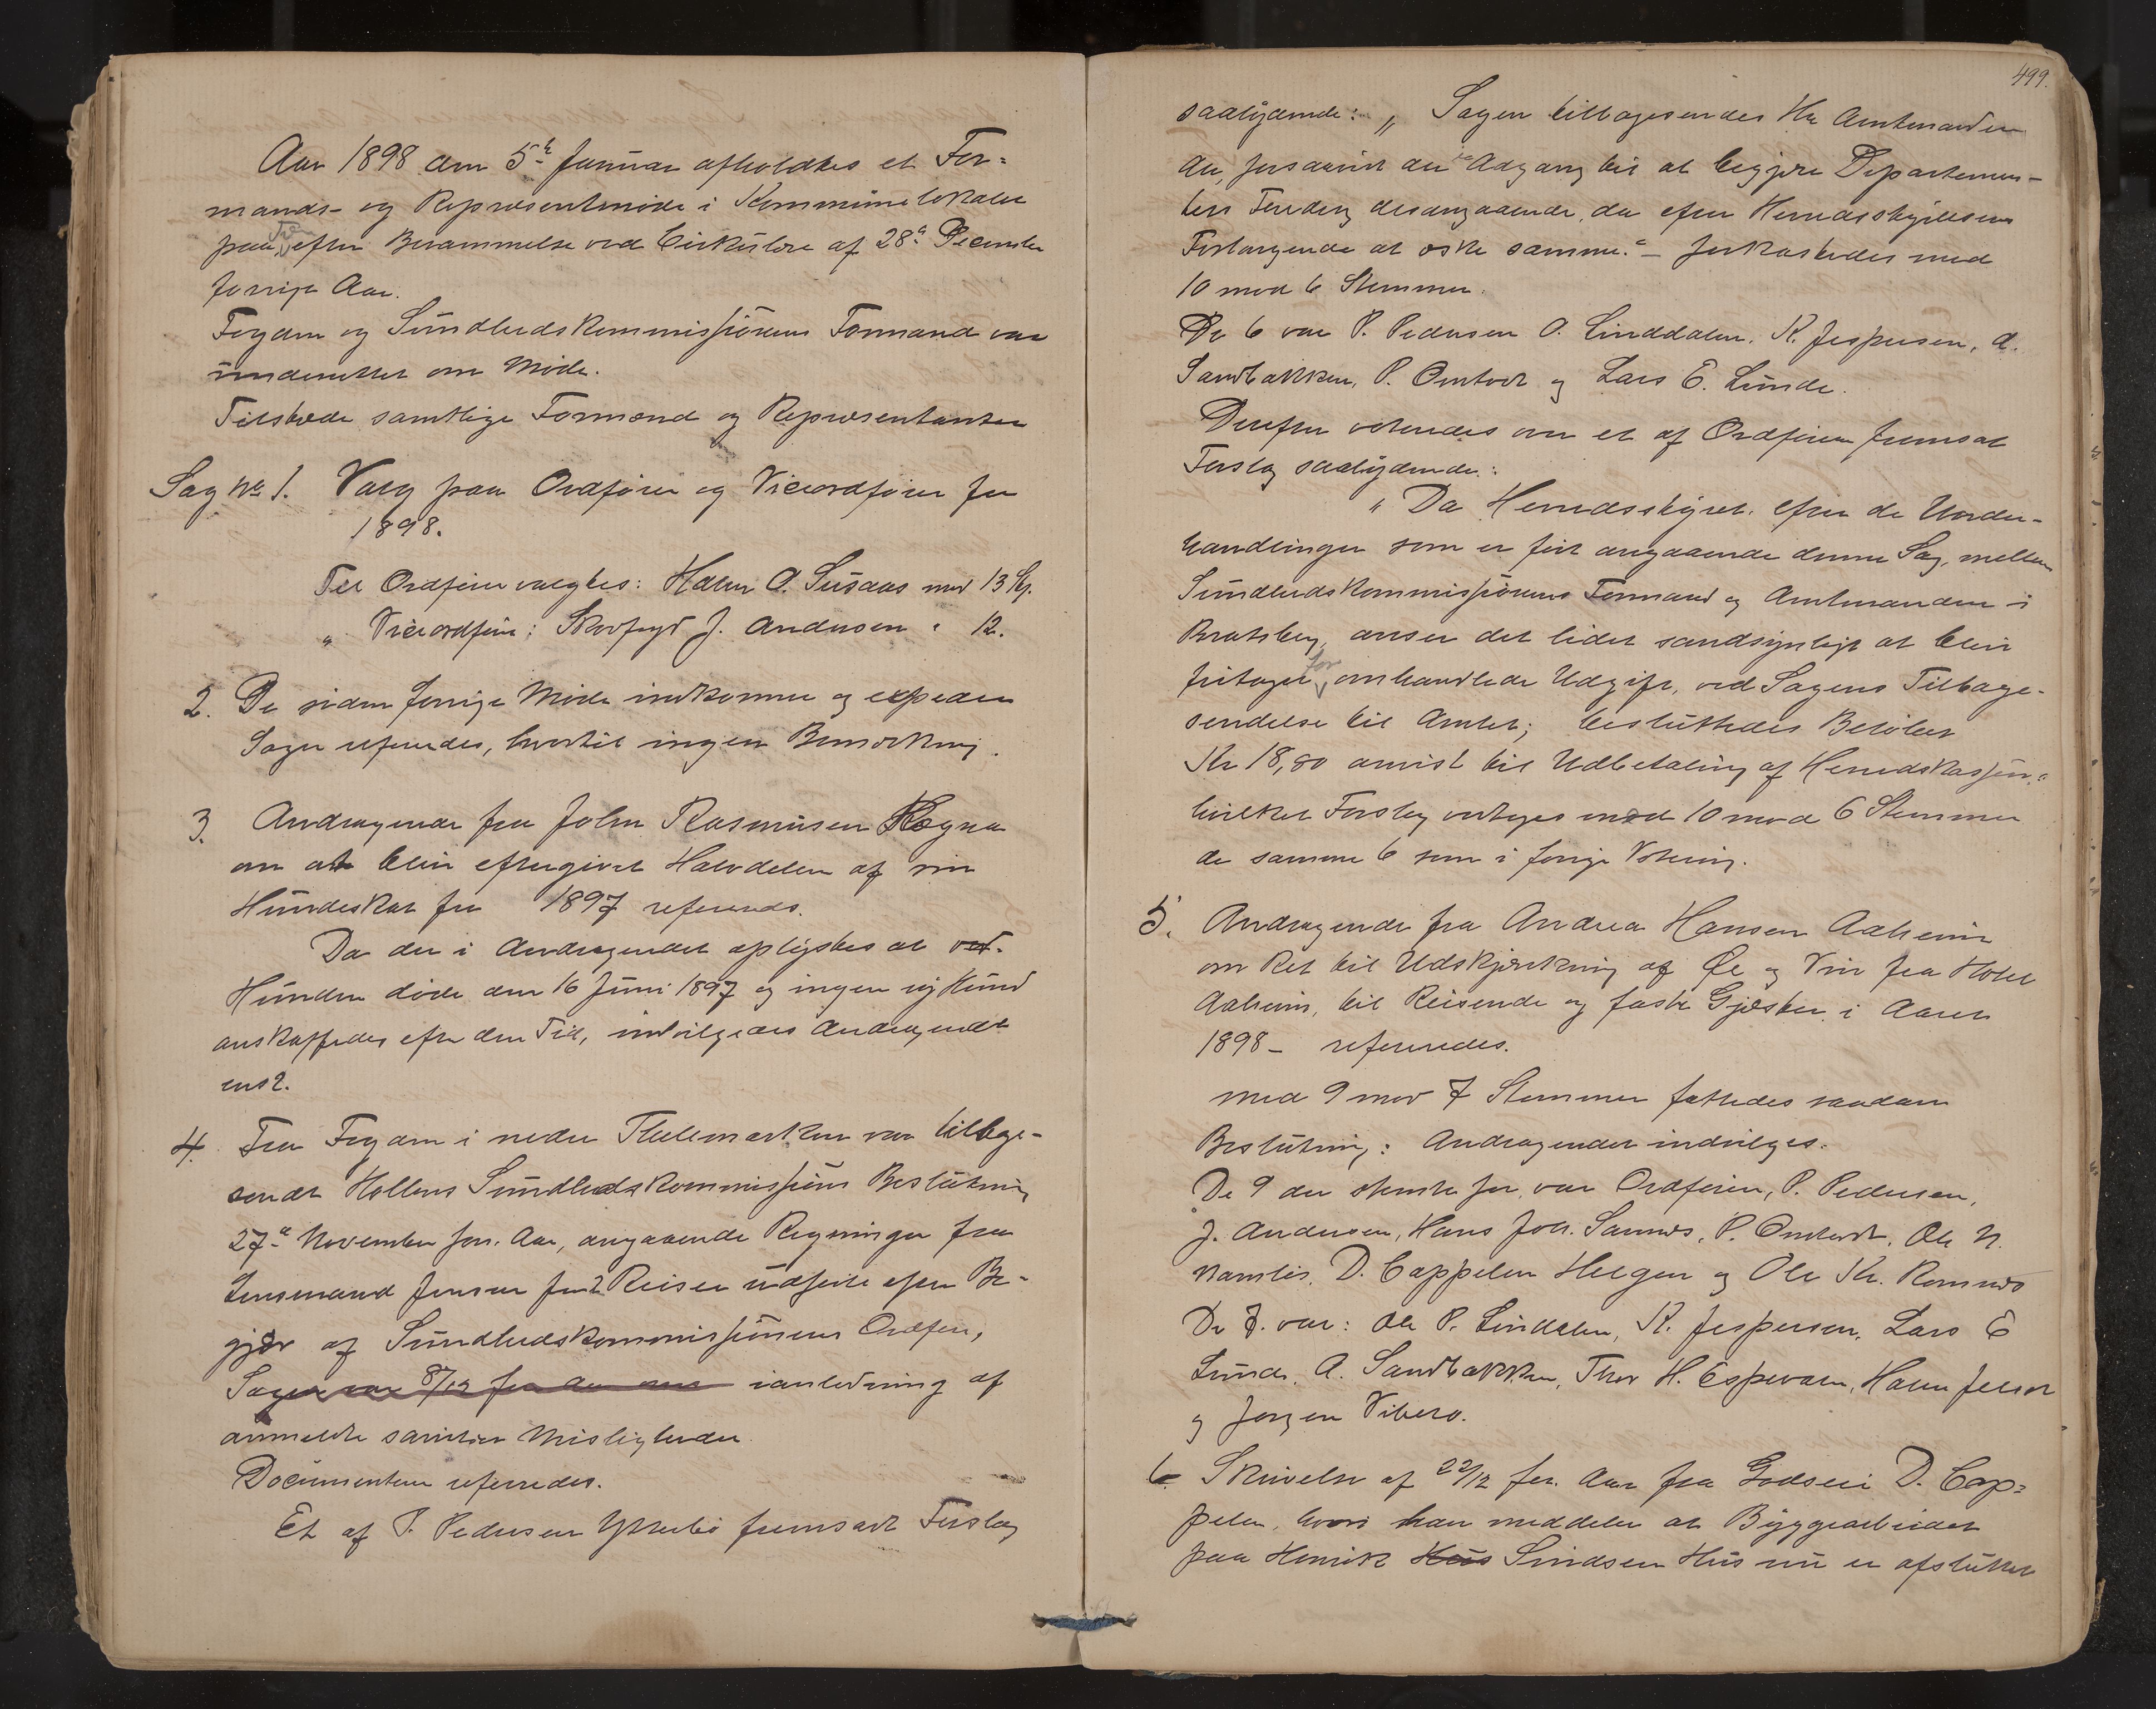 Aar 1898 den 5te Januar afholdtes et For=
mands- og Repræsentmøde i Kommunelokalet
paa efter Berammelse ved Cirkulære af 28de December
forrige Aar.
Fogden og Sundhedskommissionens Formand var
underrettet om Møde.
Tilstæde samtlige Formænd og Repræsentanter
Sag No 1. Valg paa Ordfører og Viceordfører for
1898.
Til Ordfører valgtes: Halvor O. med 13 St.
„ Viceordfører: Skovfogd J. Andersen " 12.
2. De siden forrige Møde indkomne og expedere
Sager refereredes, hvortil ingen Bemærkning.
3. Andragende fra John Rasmusen Rogna
om at blive eftergivet Halvdelen af sin
Hundeskat for 1897 refereredes.
Da der i Andragendet oplystes at ved.
Hunden døde den 16 Juni 1897 og ingen ny Hund
anskaffedes efter den Tid, indvilgedes Andragendet
enst.
4. Fra Fogden i nedre Thelemarken var tilbage-
sendt Hollens Sundhedskommissions Beslutning
27de November for. Aar, angaaende Regninger fra
Lensmand Jensen for 2 Reiser udførte efter Be-
gjær af Sundhedskommissionens Ordfør,
Sagen var 8/12 ianledning af
anmeldte sanitære Misligheder.
Documenterne refereredes.
Et af P. Pedersen Ytterbø fremsadt Forslag
499.
saalydende: „ Sagen tilbagesendes Hr Amtmanden
da, forsaavidt der er Adgang til at begjære Departemen-
tets Kjendelse desangaaende, da efter Herredsstyrelsens
Forlangende at ske samme." – forkastedes med
10 mod 6 Stemmer.
De 6 var P. Pedersen O. Linddalen, K. Jespersen, A.
Sandbakken, P. Omtvedt og Lars E. Lunde.
Derefter voteredes over et af Ordføreren fremsat
Forslag saalydende:
" Da Herredsstyret, efter de Under-
handlinger som er ført angaaende denne Sag, mellem
Sundhedskommissionens Formand og Amtmanden i
Bratsberg, anser det lidet sandsynligt at blive
fritaget for omhandlede Udgift, ved Sagens Tilbage-
sendelse til Amtet; besluttedes Beløbet
Kr 18,80 anvist til Udbetaling af Herredskassen."
hvilket Forslag vedtoges med 10 mod 6 Stemmer
de samme 6 som i forrige Votering.
5. Andragende fra Andrea Hansen Aaheim
om Ret til Udskjænkning af Øl og Vin fra Hotel
Aaheim, til Reisende og faste Gjæster i Aaret
1898 – refereredes.
med 9 mod 7 Stemmer fattedes saadan
Beslutning: Andragendet indvilges.
De 9 der stemte for, var Ordføreren, P. Pedersen,
J. Andersen, Hans Joh. Saunes, P. Omtvedt, Ole N.
Namløs, D. Cappelen Helgen og Ole Kr. Romnes
De 7 var: Ole P. Lindalen, K. Jespersen, Lars E
Lunde, A. Sandbakken, Thor H. Espevalen, Halvor Jelset
og Jørgen Vibeto.
6. Skrivelse af 22/12 for. Aar fra Godseier D. Cap=
pelen, hvori han meddeler at Byggearbeidet
paa Henrik Hus Sindsen Hus nu er afsluttet